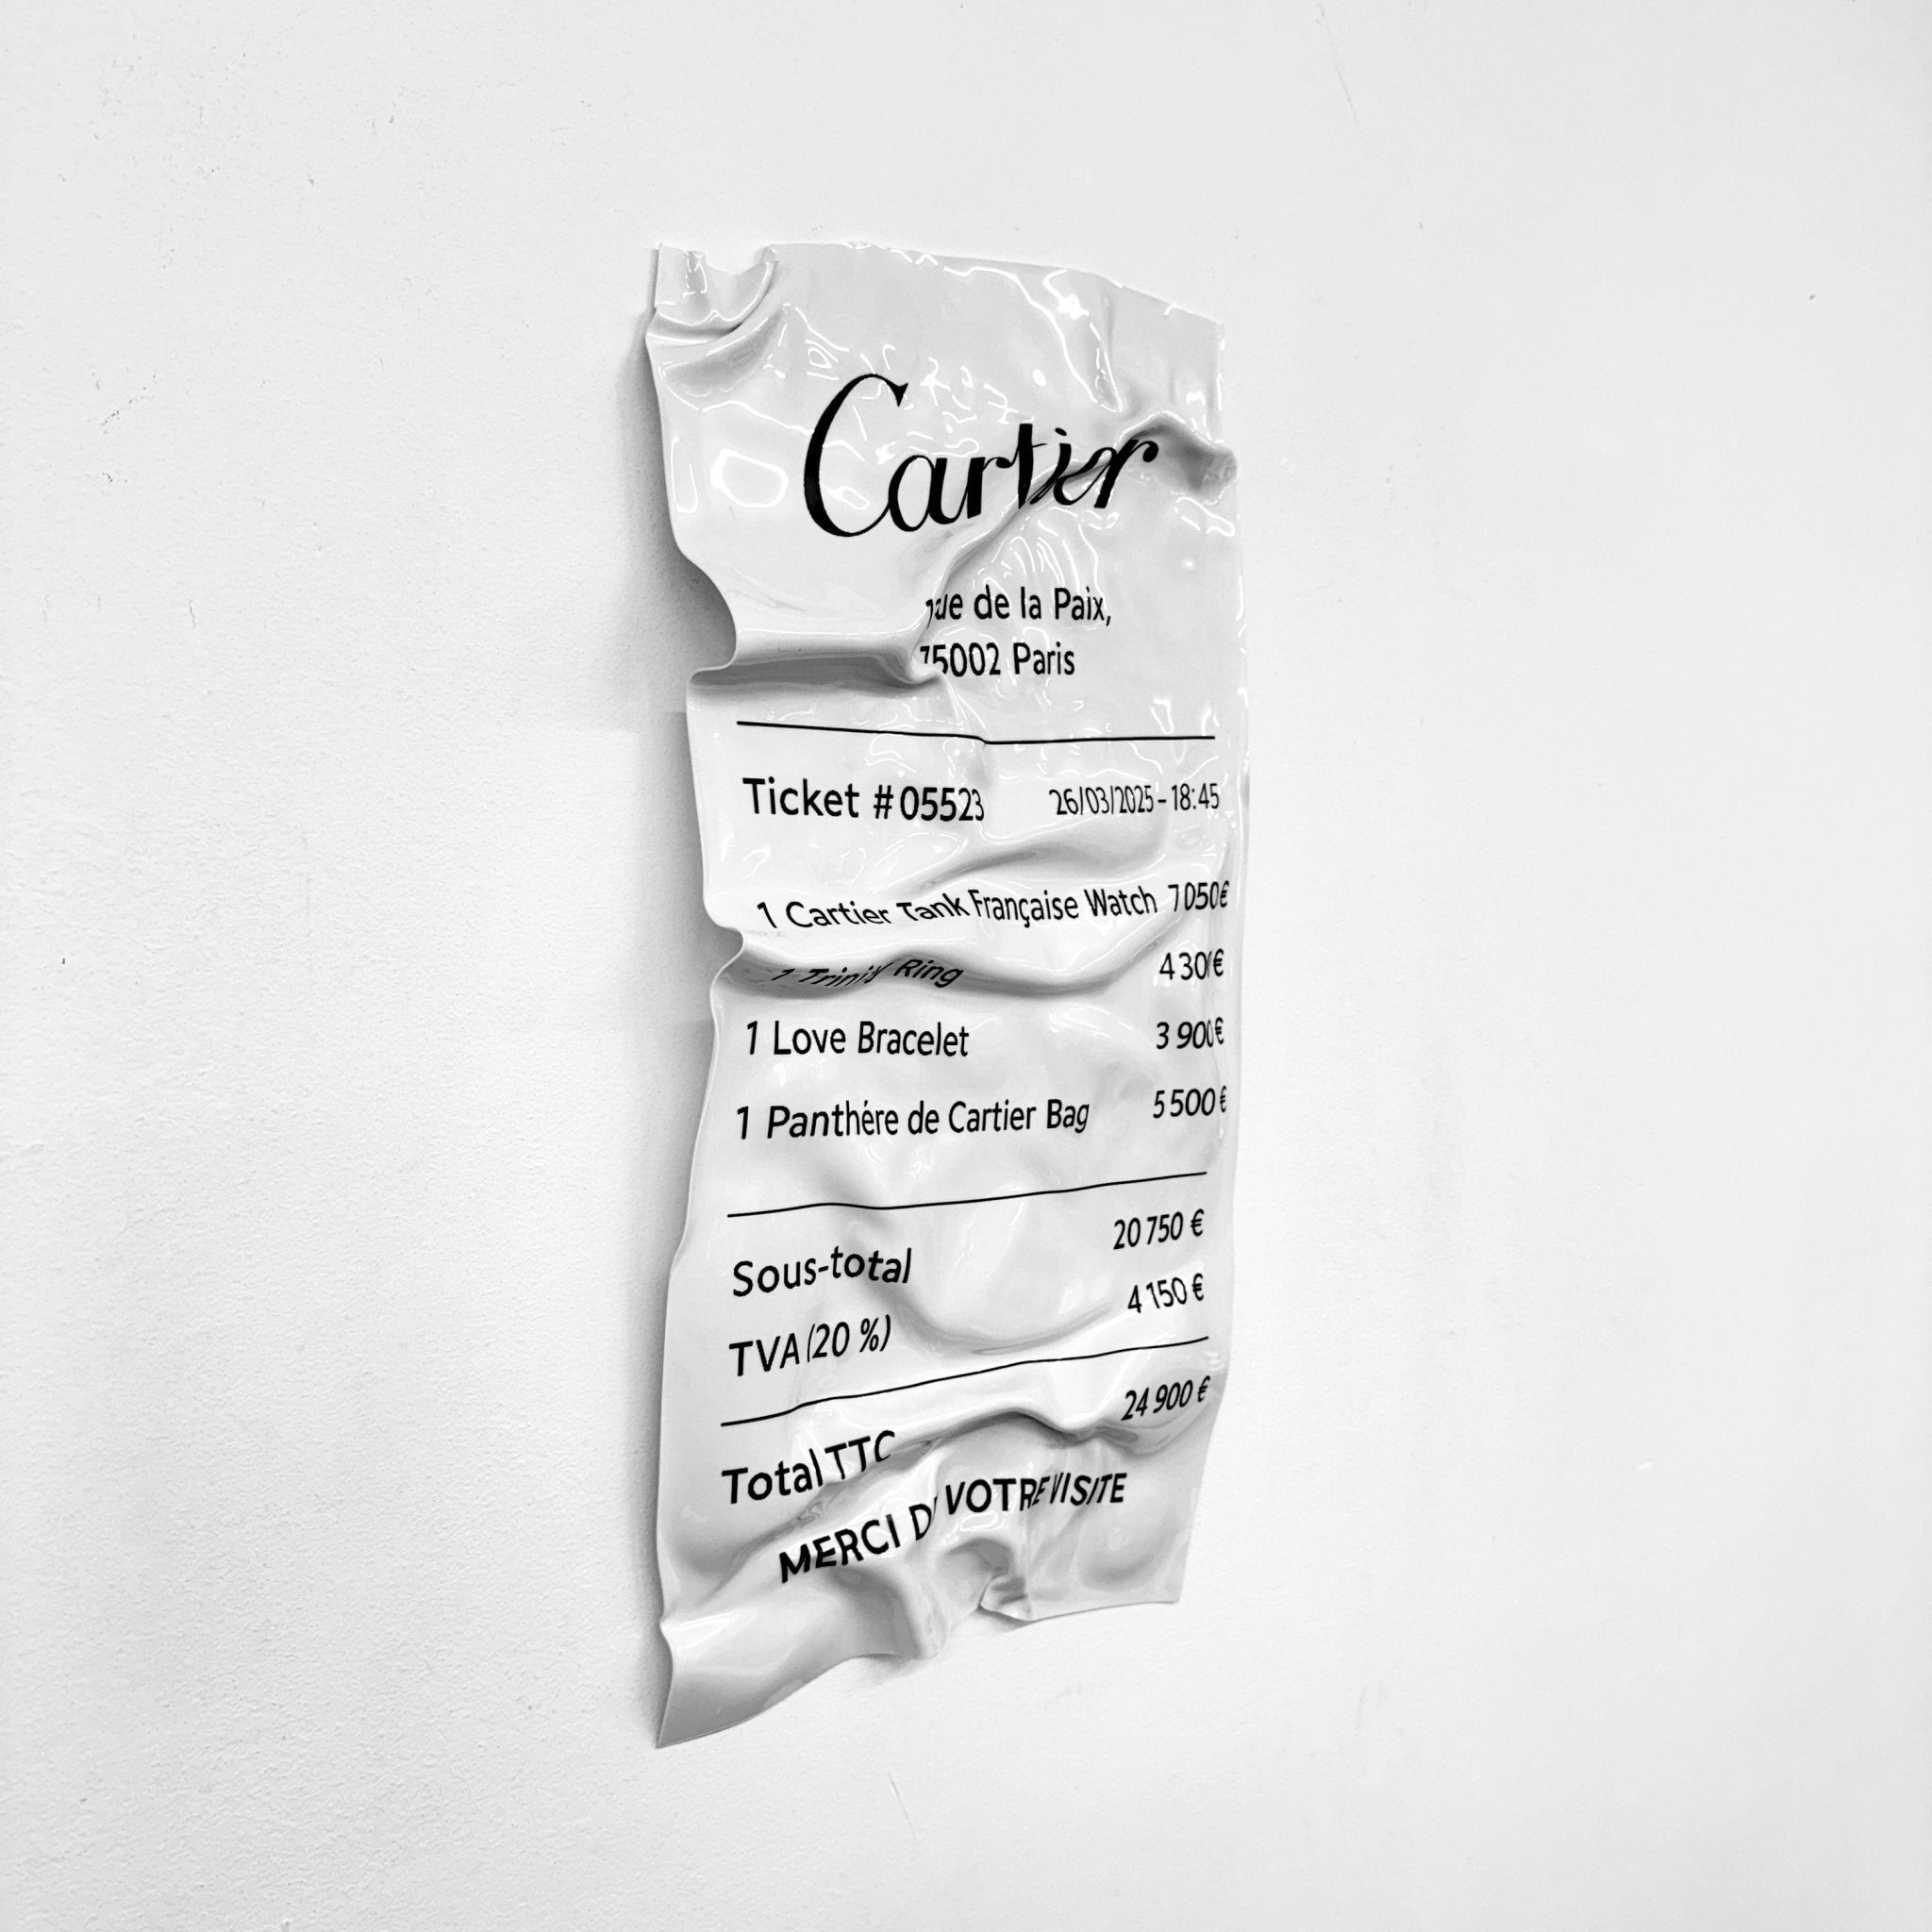 Cartier
de la Paix,
75002 Paris
Ticket #05523 26/03/2025-18:45
1 Cartier Tank Française Watch 7050€
1 Trinity Ring 4300€
1 Love Bracelet 3 900€
1 Panthére de Cartier Bag 5500€
Sous-total 20750 €
TVA (20 %) 4150 €
Total TTC 24 900 €
MERCI DE VOTRE VISITE